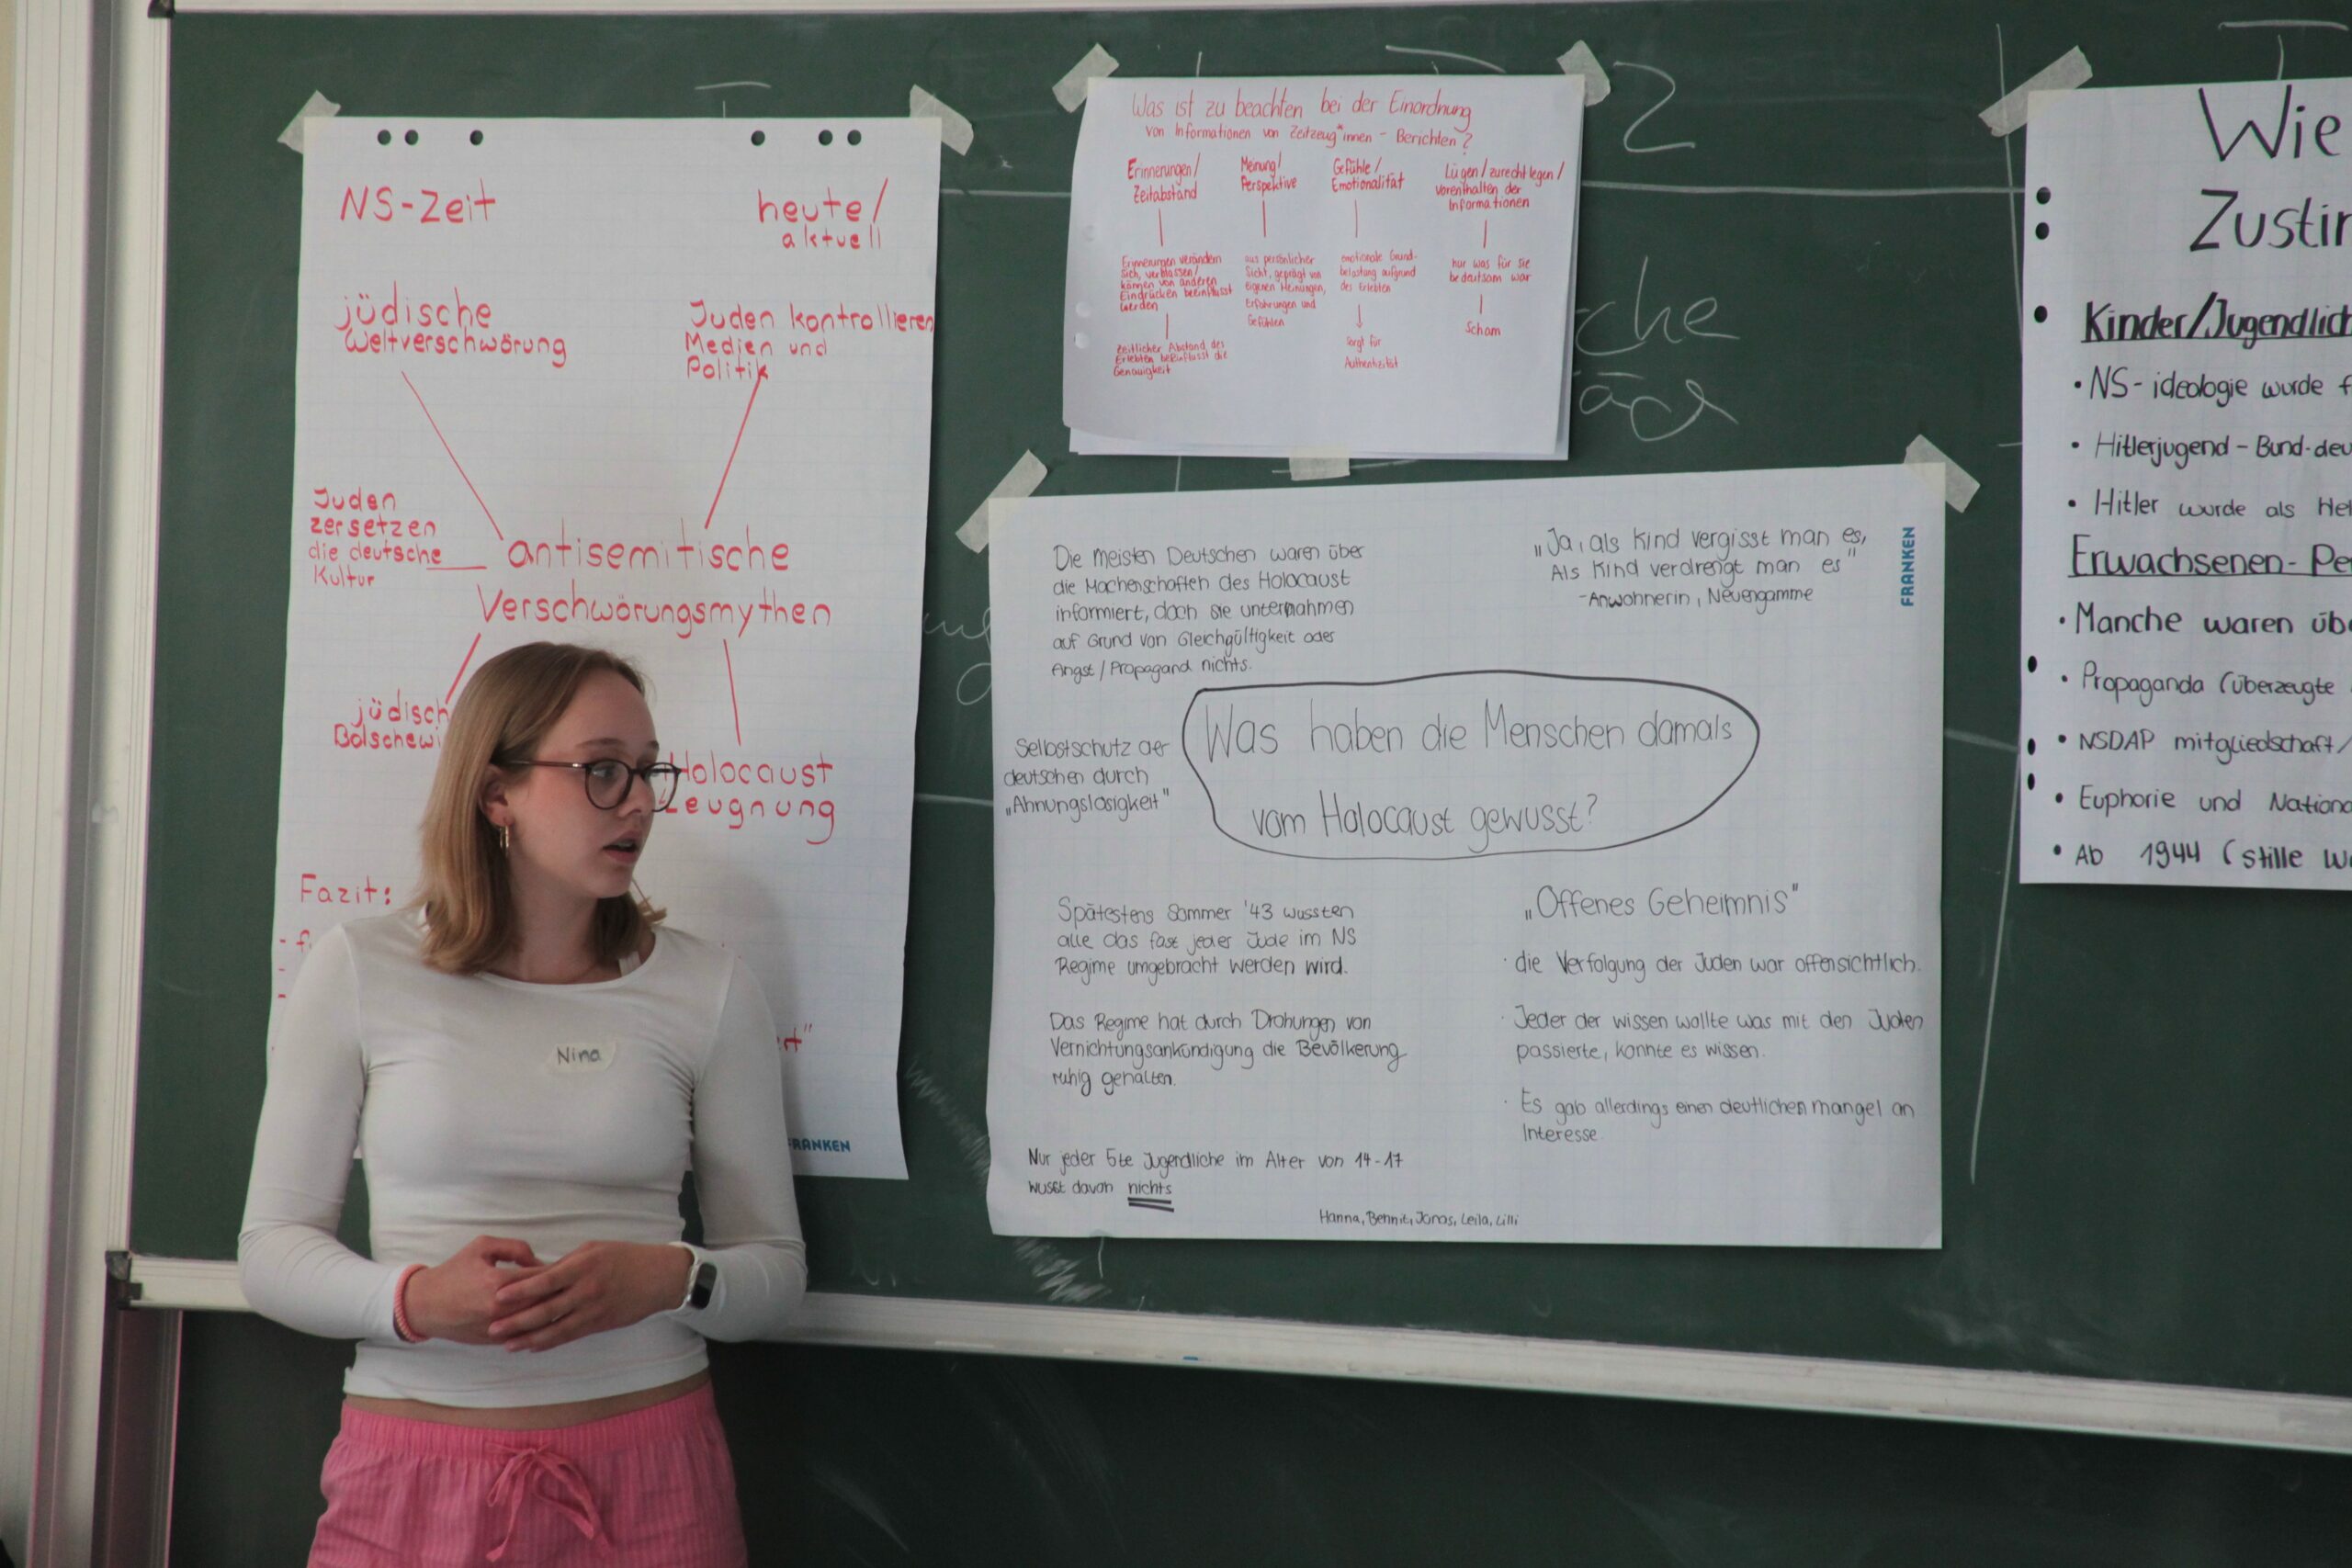 NS-Zeit
heute/
aktuell
jüdische
Weltverschwörung
Juden kontrollieren
Medien und
Politik
Juden
zersetzen
die deutsche
Kultur
antisemitische
Verschwörungsmythen
jüdisch
Bolschewi
Holocaust
leugnung
Fazit:
FRANKEN
Nina
Was ist zu beachten bei der Einordnung
von Informationen von Zeitzeug*innen - Berichten?
Erinnerungen/
Zeitabstand
Erinnerungen verändern
sich, verblassen/
können von anderen
Eindrücken beeinflusst
werden
zeitlicher Abstand des
Erlebten beeinflusst die
Genauigkeit
Meinung/
Perspektive
aus persönlicher
Sicht, geprägt von
eigenen Meinungen,
Erfahrungen und
Gefühlen
Gefühle/
Emotionalität
emotionale Grund-
belastung aufgrund
des Erlebten
sorgt für
Authentizität
Lügen/zurechtlegen/
vorenthalten der
Informationen
nur was für sie
bedeutsam war
Scham
2
che
Die meisten Deutschen waren über
die Machenschaften des Holocaust
informiert, doch sie unternahmen
auf Grund von Gleichgültigkeit oder
Angst/Propagand nichts.
„Ja, als Kind vergisst man es,
Als Kind verdrengt man es"
-Anwohnerin, Neuengamme
FRANKEN
Selbstschutz der
deutschen durch
„Ahnungslosigkeit"
Was haben die Menschen damals
vom Holocaust gewusst?
Spätestens Sommer '43 wussten
alle das fast jeder Jude im NS
Regime umgebracht werden wird.
Das Regime hat durch Drohungen von
Vernichtungsankündigung die Bevölkerung
ruhig gehalten.
Nur jeder 5te Jugendliche im Alter von 14-17
wusst davon nichts
„Offenes Geheimnis"
· die Verfolgung der Juden war offensichtlich.
· Jeder der wissen wollte was mit den Juden
passierte, konnte es wissen.
· Es gab allerdings einen deutlichen mangel an
Interesse.
Hanna, Bennit, Jonas, Leila, Lilli
Wie
Zustim
Kinder/Jugendlich
• NS-ideologie wurde f
• Hitlerjugend - Bund-deu
• Hitler wurde als Hel
Erwachsenen-Pe
• Manche waren übe
• Propaganda (überzeugte
• NSDAP mitgliedschaft/
• Euphorie und Nationa
• Ab 1944 (stille W